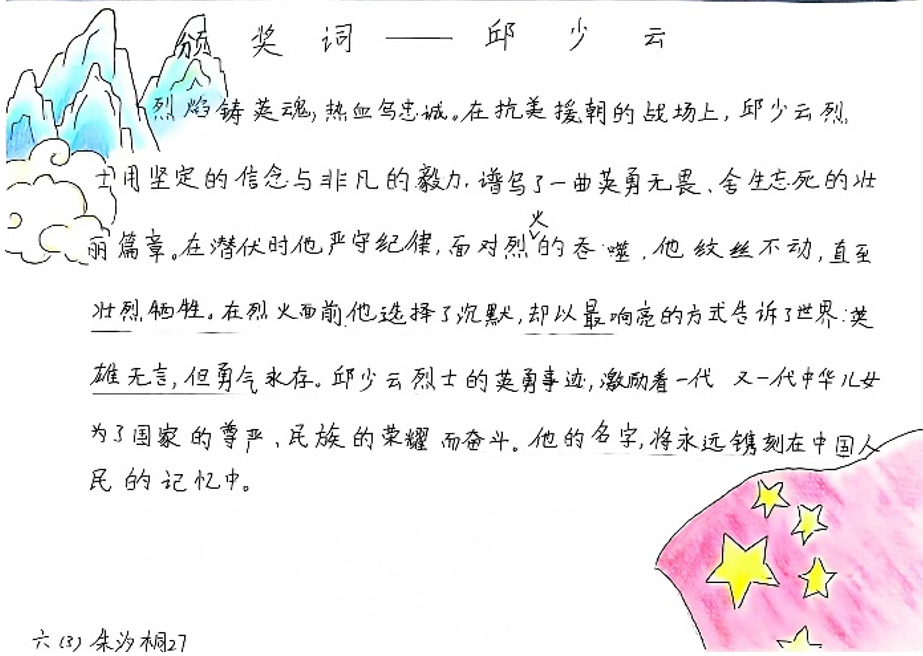 颁奖词——邱少云
烈焰铸英魂，热血写忠诚。在抗美援朝的战场上，邱少云烈
士用坚定的信念与非凡的毅力，谱写了一曲英勇无畏、舍生忘死的壮
丽篇章。在潜伏时他严守纪律，面对烈火的吞噬，他纹丝不动，直至
壮烈牺牲。在烈火面前他选择了沉默，却以最响亮的方式告诉了世界：英
雄无言，但勇气永存。邱少云烈士的英勇事迹，激励着一代又一代中华儿女
为了国家的尊严、民族的荣耀而奋斗。他的名字，将永远镌刻在中国人
民的记忆中。
六（3）朱汐桐27